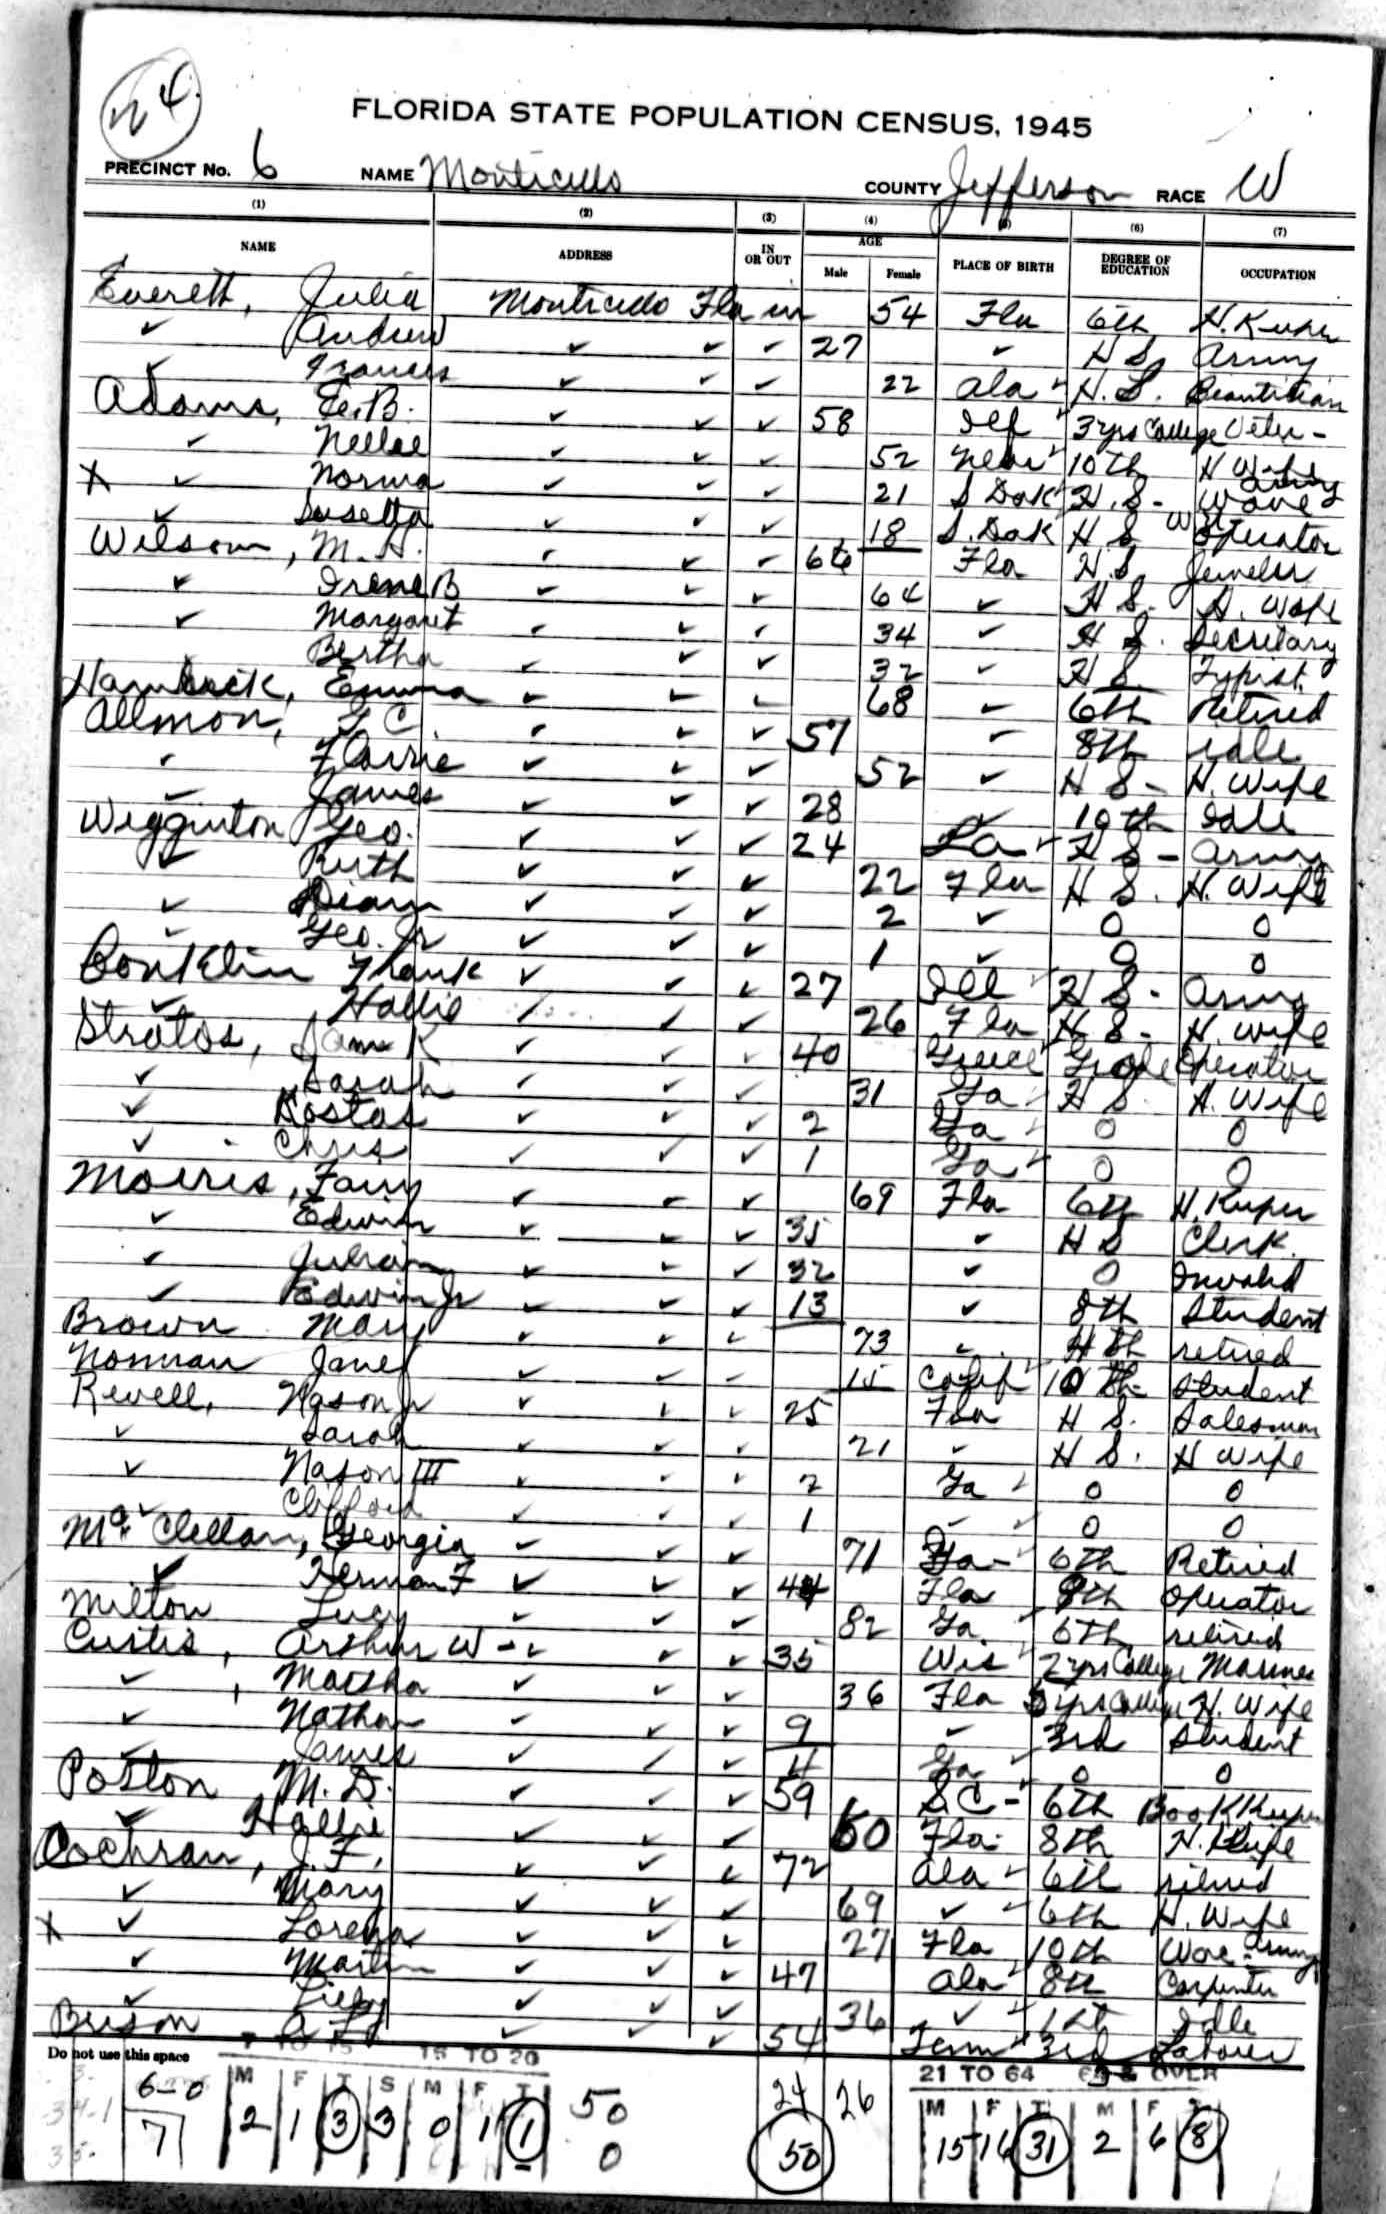 24
FLORIDA STATE POPULATION CENSUS, 1945
PRECINCT No. 6 NAME Monticello COUNTY Jefferson RACE W
(1) (2) (3) (4) (5) (6) (7)
NAME ADDRESS IN OR OUT AGE Male Female PLACE OF BIRTH DEGREE OF EDUCATION OCCUPATION
Everett, Julia Monticello Fla in 54 Fla 6th H. Keeper
✓ Andrew ✓ ✓ ✓ 27 ✓ H S. Army
✓ Frances ✓ ✓ ✓ 22 Ala ✓ H. S. Beautician
Adams, E. B. ✓ ✓ ✓ 58 Ill ✓ 3 yrs College Veter-
✓ Nellie ✓ ✓ ✓ 52 Nebr ✓ 10th H Wife
X ✓ Norma ✓ ✓ ✓ 21 S Dak ✓ H. S- Wave Army
✓ Susetta ✓ ✓ ✓ 18 S. Dak H S Operator
Wilson, M. H. ✓ ✓ ✓ 66 Fla H. S Jeweler
✓ Irene B ✓ ✓ ✓ 64 ✓ H S. H. Wife
✓ Margaret ✓ ✓ ✓ 34 ✓ H S. Secretary
Bertha ✓ ✓ ✓ 32 ✓ H S. Typist
Hambrick, Emma ✓ ✓ ✓ 68 ✓ 6th Retired
Allmon, ✓ ✓ ✓ 57 ✓ 8th idle
✓ Florrie ✓ ✓ ✓ 52 ✓ H S- H. Wife
✓ James ✓ ✓ ✓ 28 ✓ 10th Idle
Wigginton Geo. ✓ ✓ ✓ 24 La ✓ H S- Army
✓ Ruth ✓ ✓ ✓ 22 Fla H S. H. Wife
✓ Diann ✓ ✓ ✓ 2 ✓ 0 0
✓ Geo. Jr ✓ ✓ ✓ 1 ✓ 0 0
Conklin Frank ✓ ✓ ✓ 27 Ill ✓ H S- Army
✓ Hallie ✓ ✓ ✓ 26 Fla H S- H. Wife
Stratos, Sam K ✓ ✓ ✓ 40 Greece Operator
✓ Sarah ✓ ✓ ✓ 31 Ga ✓ H S. H. Wife
✓ Kostas ✓ ✓ ✓ 2 Ga ✓ 0 0
✓ Chris ✓ ✓ ✓ 1 Ga ✓ 0 0
Morris, Fany ✓ ✓ ✓ 69 Fla 6th H. Keeper
✓ Edwin ✓ ✓ ✓ 35 ✓ H S Clerk
✓ Julian ✓ ✓ ✓ 32 ✓ 0 Invalid
✓ Edwin Jr ✓ ✓ ✓ 13 ✓ 8th Student
Brown Mary ✓ ✓ ✓ 73 ✓ retired
Norman Janet ✓ ✓ ✓ 15 Calif ✓ 10 th- Student
Revell, Nason Jr ✓ ✓ ✓ 25 Fla H S. Salesman
✓ Sarah ✓ ✓ ✓ 21 ✓ H S. H Wife
✓ Nason III ✓ ✓ ✓ 2 Ga ✓ 0 0
✓ Clifford ✓ ✓ ✓ 1 ✓ ✓ 0 0
McClellan, Georgia ✓ ✓ ✓ 71 Ga- ✓ 6th Retired
✓ Herman F ✓ ✓ ✓ 44 Fla 8th Operator
Milton Lucy ✓ ✓ ✓ 82 Ga. ✓ 6th retired
Curtis, Arthur W- ✓ ✓ ✓ 35 Wis ✓ 2 yrs College Marines
✓ Martha ✓ ✓ ✓ 36 Fla yrs College H. Wife
✓ Nathan ✓ ✓ ✓ 9 ✓ 3rd Student
✓ James ✓ ✓ ✓ 4 Ga ✓ 0 0
Poston M. D. ✓ ✓ ✓ 59 S C- 6th Book Keeper
✓ Hallie ✓ ✓ ✓ 60 Fla. 8th H. Wife
Cochran, J. F. ✓ ✓ ✓ 72 Ala ✓ 6th retired
✓ Mary ✓ ✓ ✓ 69 ✓ ✓ 6th H. Wife
X ✓ Lorena ✓ ✓ ✓ 27 Fla 10th Wave-Army
✓ Martin ✓ ✓ ✓ 47 Ala ✓ 8th Carpenter
✓ Lilly ✓ ✓ ✓ 36 ✓ ✓ 1st Idle
Brison ✓ ✓ ✓ 54 Tenn ✓ 3rd Laborer
Do not use this space
15 TO 20 21 TO 64 65 & OVER
M F T S M F T M F T M F T
6-0 7 2 1 3 3 0 1 1 50 0 24 26 50 15 16 31 2 6 8